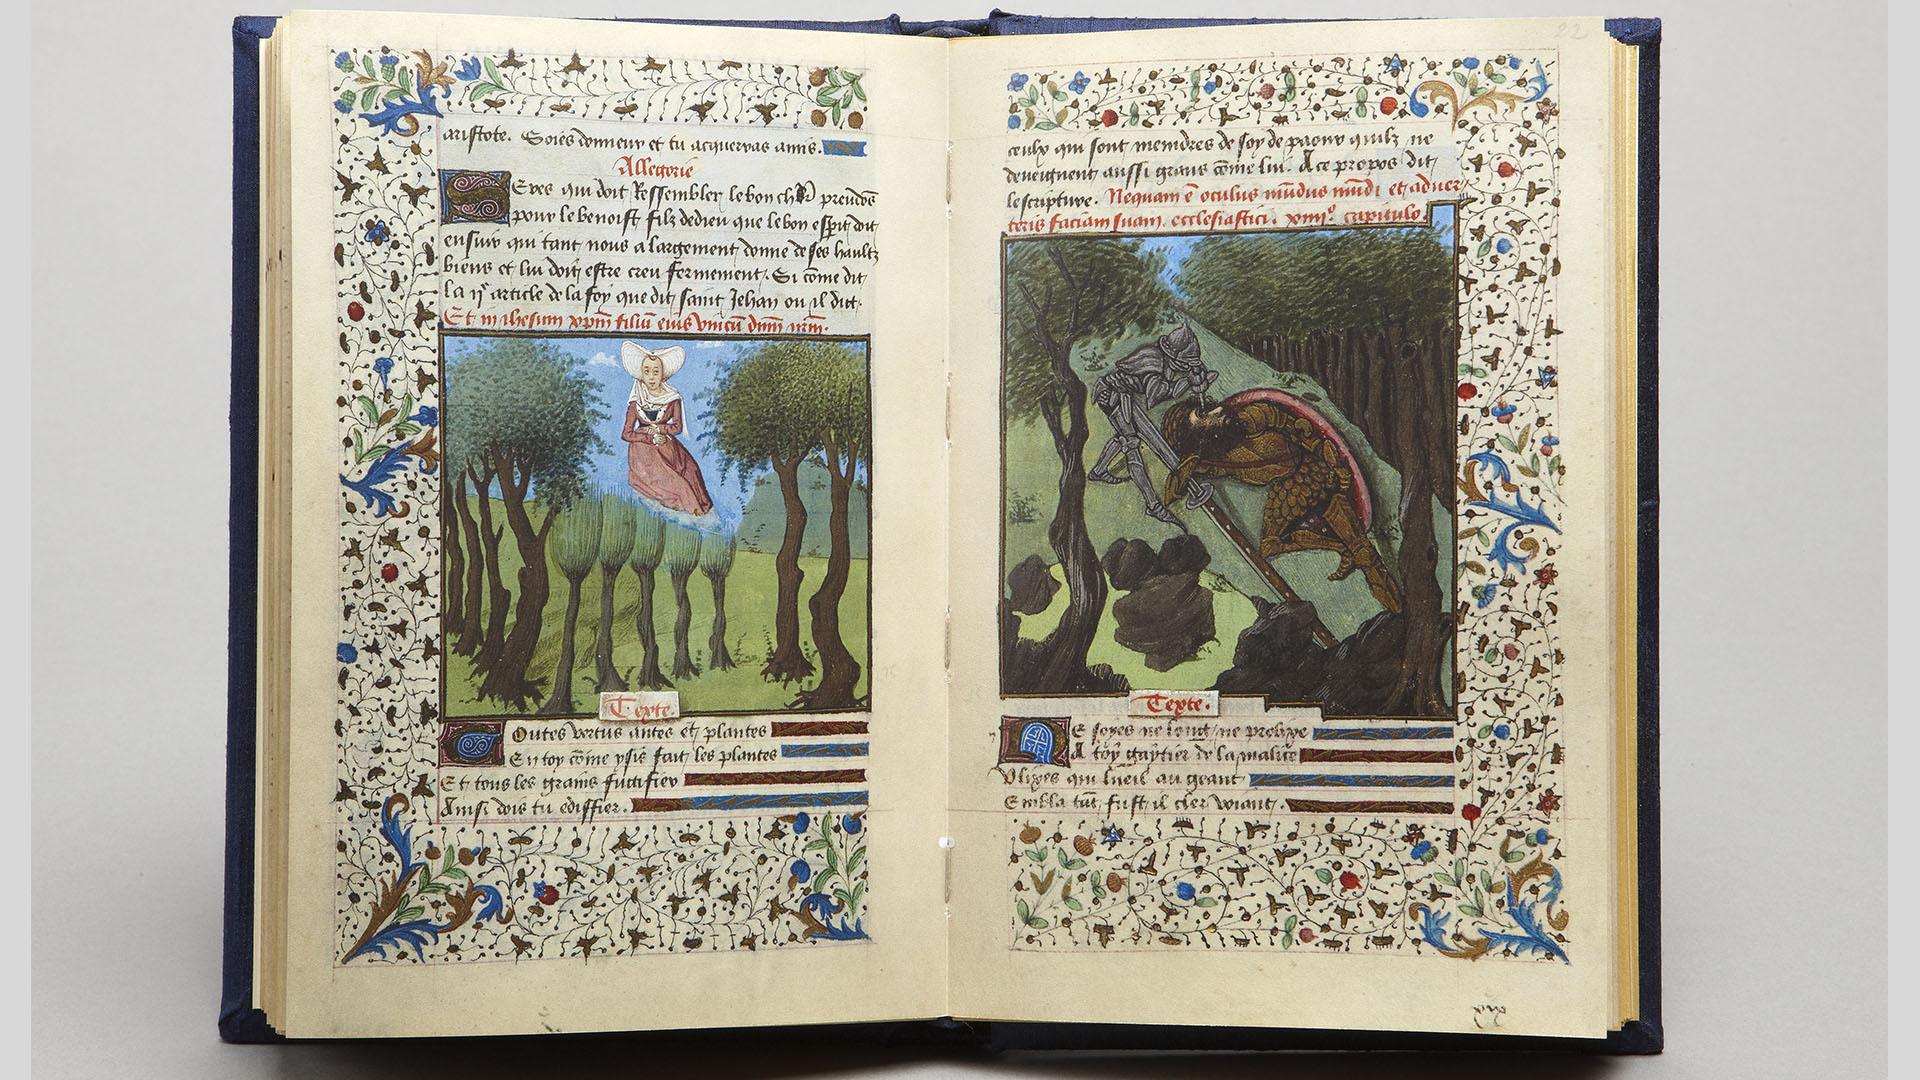 aristote. Soies donneur et tu acquerras amis.
Allegorie
Eves qui doit Ressembler le bon chlr preudõs
pour le benoist filz de dieu que le bon esp̃it doit
ensuir qui tant nous a largement donne de ses haultz
biens et lui doit estre creu fermement. Si cõme dit
la ije article de la foy que dit saint Jehan ou il dit.
Et in ihesum xp̃m filiũ eius vnicũ dñm nr̃m.
Texte.
Outes vertus antes et plantes
En toy cõme ysis fait les plantes
Et tous les grains fructifier
Ainsi dois tu ediffier.
22
ceulx qui sont meindres de soy de paour quilz ne
deveignent aussi grans cõme lui. A ce propos dit
lescripture. Nequam ẽ oculus et aduer
teris faciam suam. ecclesiastici. xiiijo. capitulo.
Texte.
E soyes ne long ne prolixe
A toy de la malice
Vlixes qui lueil au geant
Embla tãt fust il cler voiant.
xix